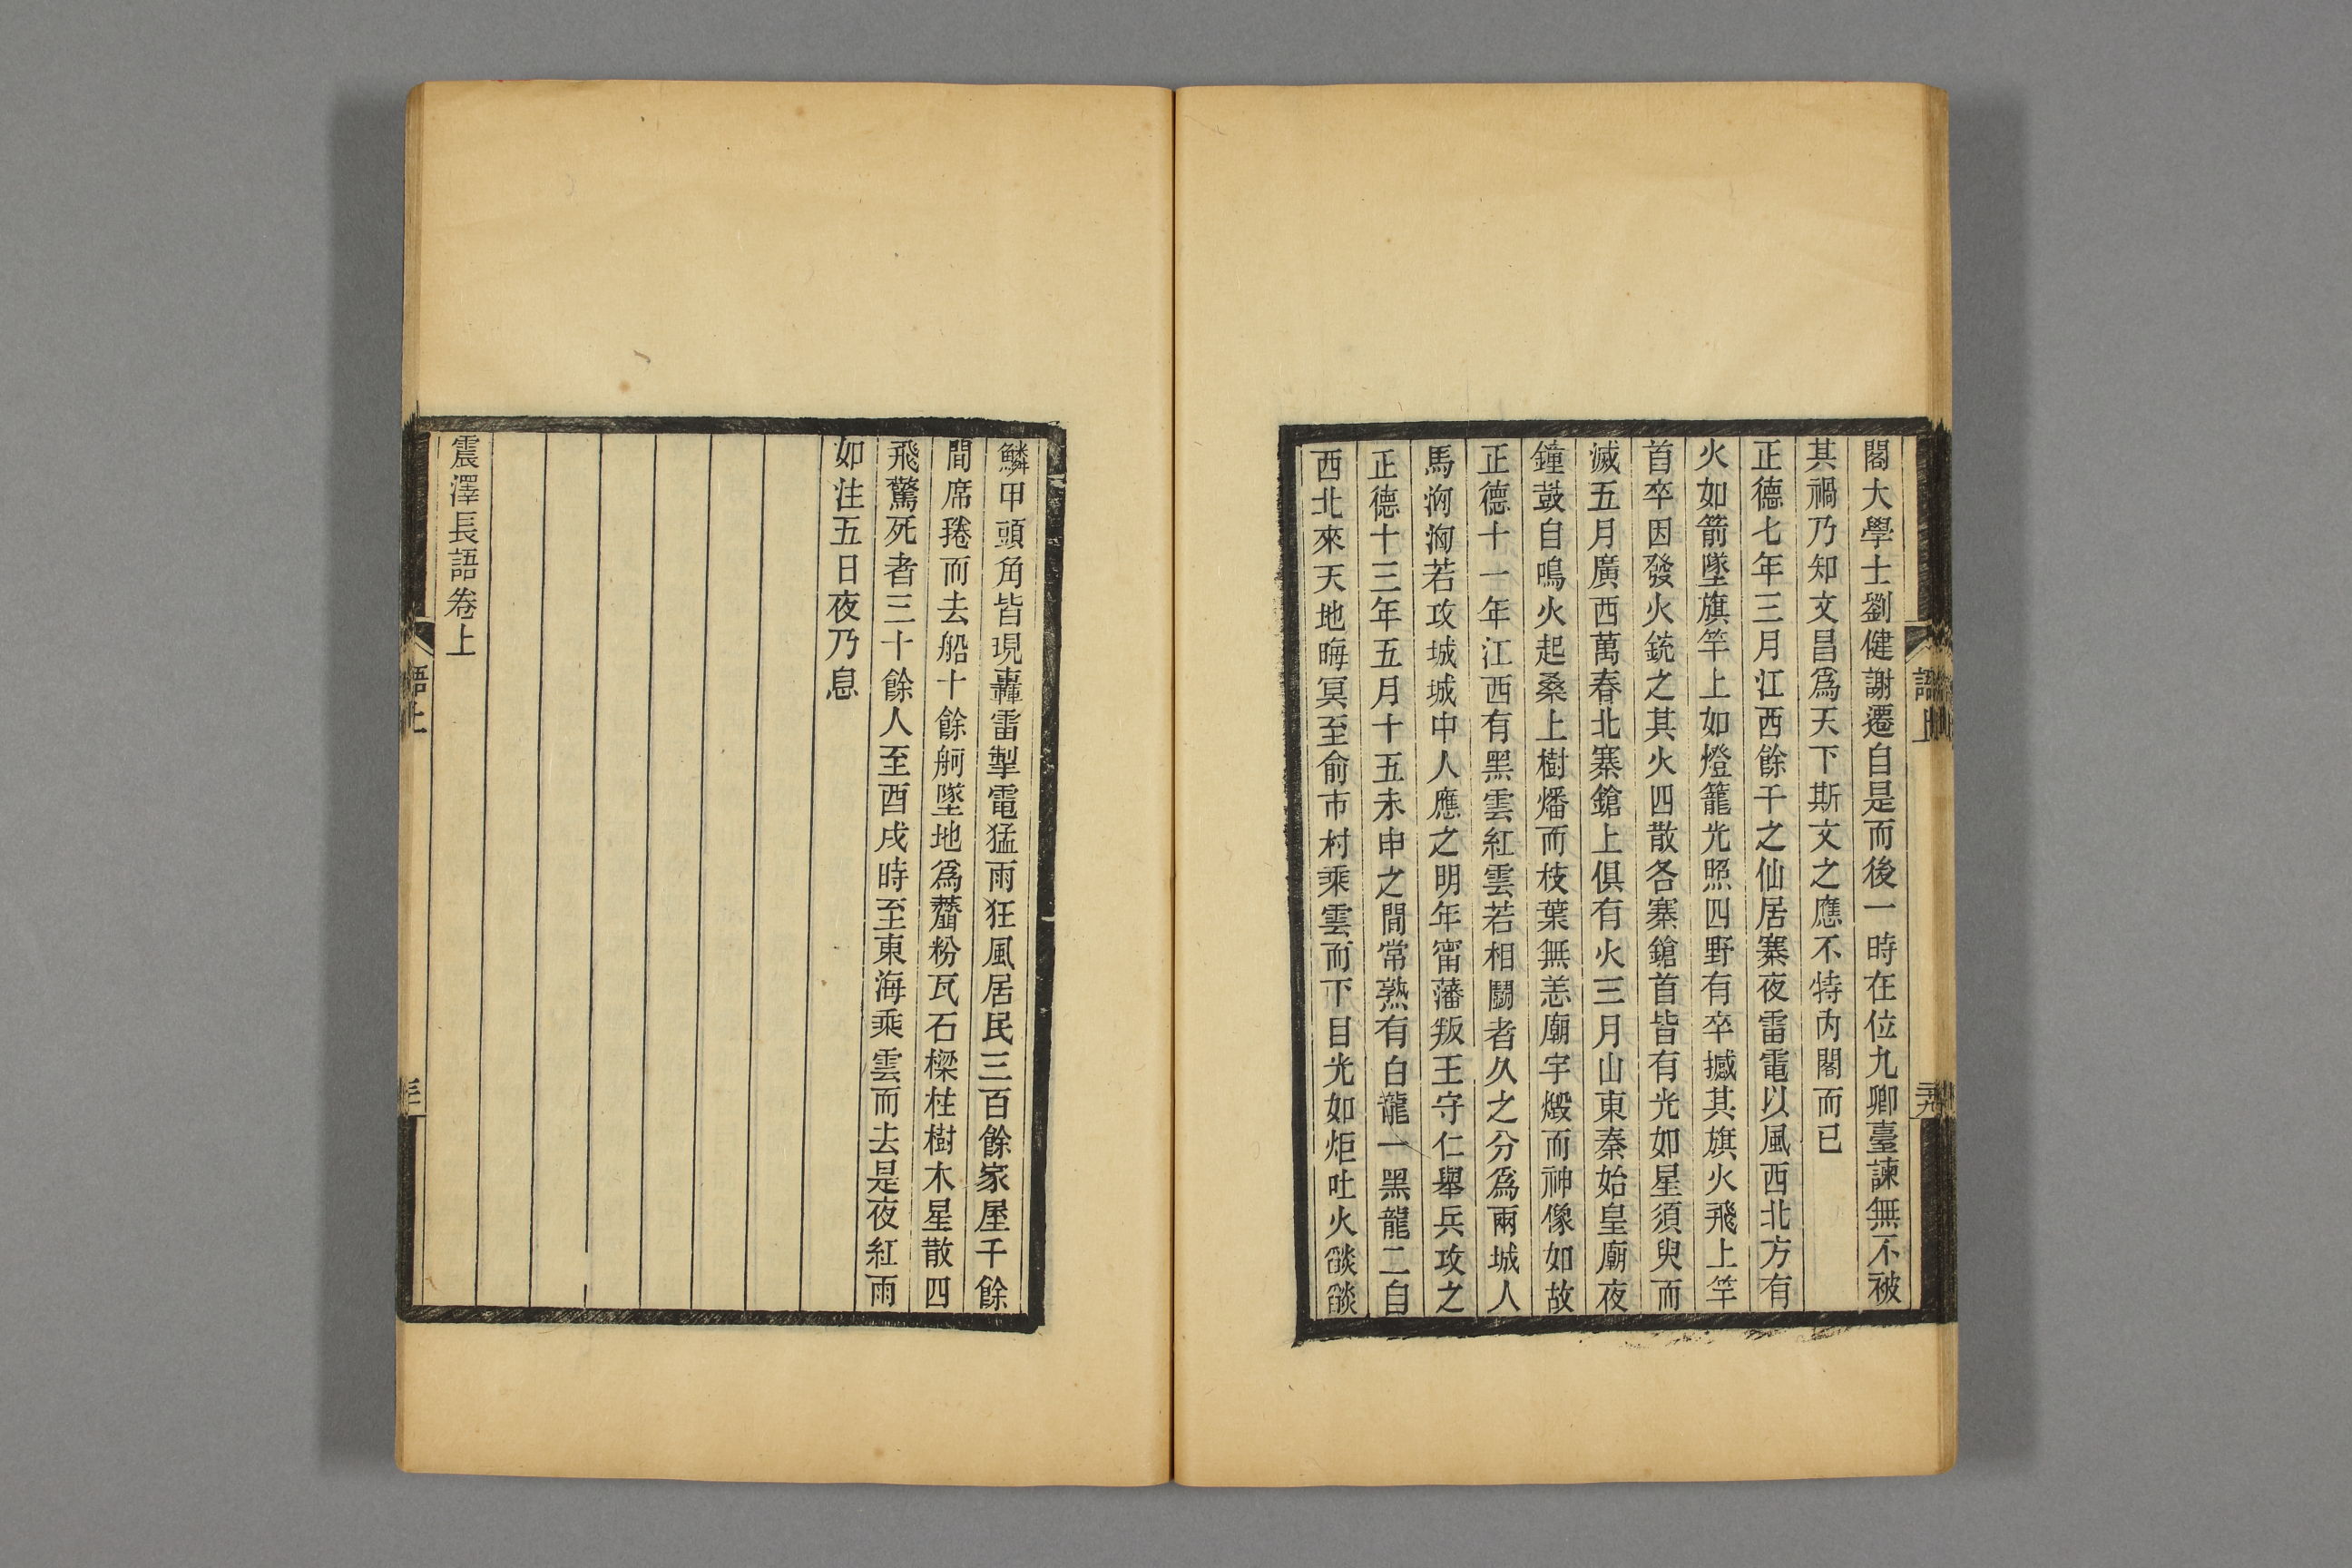 閣大學士劉健謝遷自是而後一時在位九卿臺諫無不被
其禍乃知文昌爲天下斯文之應不特內閣而已
正德七年三月江西餘干之仙居寨夜雷電以風西北方有
火如箭墜旗竿上如燈籠光照四野有卒撼其旗火飛上竿
首卒因發火銃之其火四散各寨鎗首皆有光如星須臾而
滅五月廣西萬春北寨鎗上俱有火三月山東秦始皇廟夜
鐘鼓自鳴火起桑上樹燔而枝葉無恙廟宇燬而神像如故
正德十一年江西有黑雲紅雲若相鬭者久之分爲兩城人
馬洶洶若攻城城中人應之明年甯藩叛王守仁舉兵攻之
正德十三年五月十五未申之間常熟有白龍一黑龍二自
西北來天地晦冥至俞市村乘雲而下目光如炬吐火燄燄
語上
鱗甲頭角皆現轟雷掣電猛雨狂風居民三百餘家屋千餘
間席捲而去船十餘舸墜地爲虀粉瓦石樑柱樹木星散四
飛驚死者三十餘人至酉戌時至東海乘雲而去是夜紅雨
如注五日夜乃息
震澤長語卷上
語上